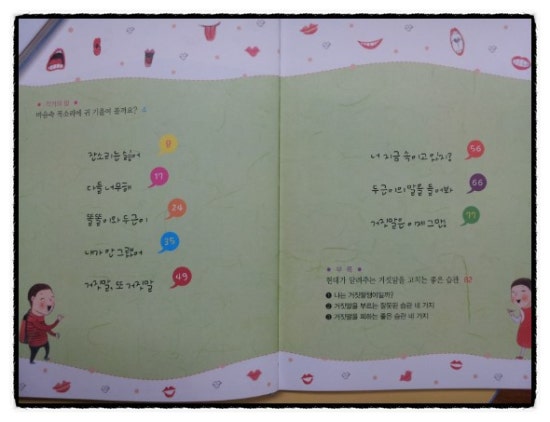 ★ 작가의 말 ★
마음속 목소리에 귀 기울여 볼까요? 4
잔소리는 싫어 9
다들 너무해 17
똘똘이와 두근이 24
내가 안 그랬어 35
거짓말, 또 거짓말 49
너 지금 속이고 있지? 56
두근이의 말을 들어봐 66
거짓말은 이제 그만! 77
★ 부록 ★
현대가 알려주는 거짓말을 고치는 좋은 습관 82
❶ 나는 거짓말쟁이일까?
❷ 거짓말을 부르는 잘못된 습관 네 가지
❸ 거짓말을 피하는 좋은 습관 네 가지